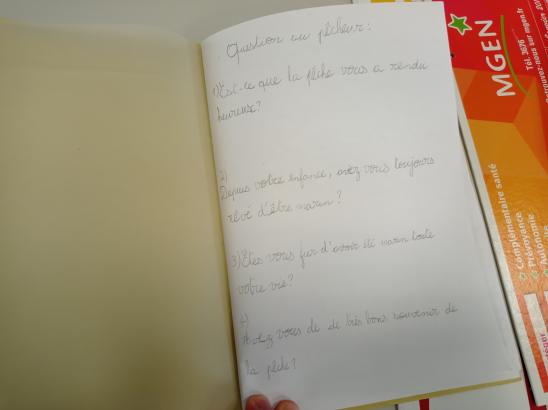 Question au pêcheur :
1) Est-ce que la pêche vous a rendu
heureux ?
2)
Depuis votre enfance, avez vous toujours
rêvé d'être marin ?
3) Êtes vous fier d'avoir été marin toute
votre vie ?
4)
Avez vous de de très bons souvenir de
la pêche ?
MGEN
Tél. 3676
Retrouvez-nous sur mgen.fr
Complémentaire santé
Prévoyance
Autonomie